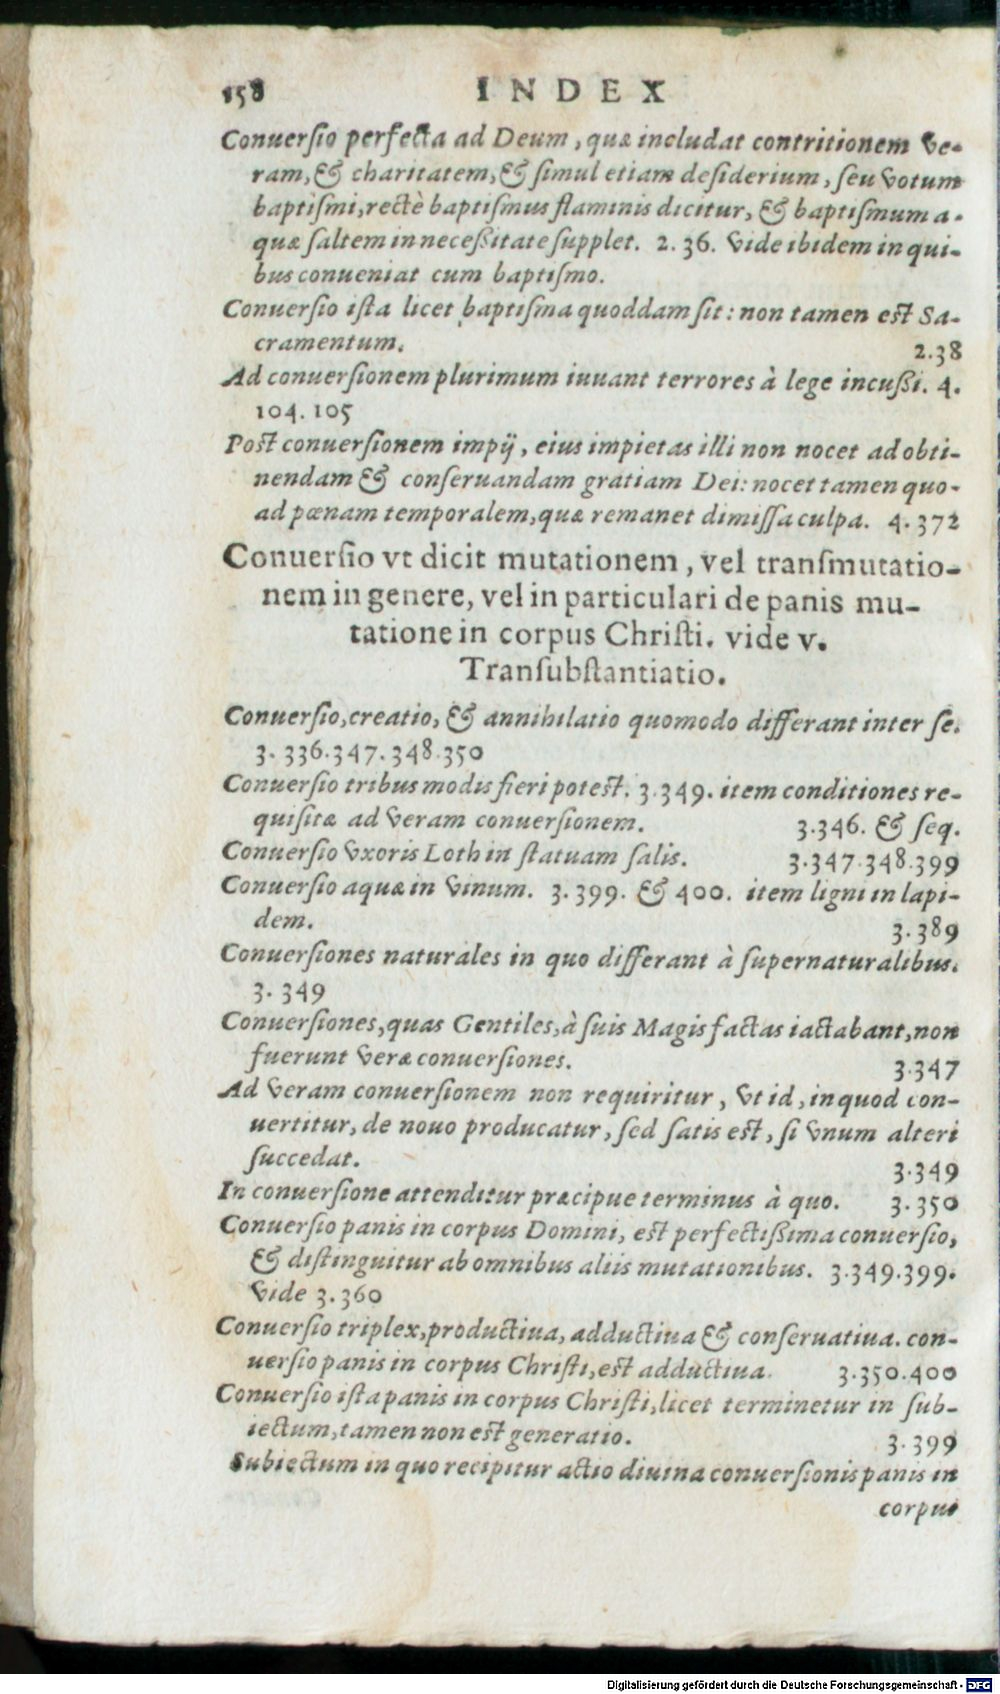 158 INDEX
Conuersio perfecta ad Deum, quæ includat contritionem ve-
ram, & charitatem, & simul etiam desiderium, seu votum
baptismi, rectè baptismus flaminis dicitur, & baptismum a-
quæ saltem in necessitate supplet. 2. 36. Vide ibidem in qui-
bus conueniat cum baptismo.
Conuersio ista licet baptisma quoddam sit: non tamen est Sa-
cramentum. 2.38
Ad conuersionem plurimum iuuant terrores à lege incussi. 4.
104. 105
Post conuersionem impij, eius impietas illi non nocet ad obti-
nendam & conseruandam gratiam Dei: nocet tamen quo-
ad pœnam temporalem, quæ remanet dimissa culpa. 4. 372
Conuersio vt dicit mutationem, vel transmutatio-
nem in genere, vel in particulari de panis mu-
tatione in corpus Christi. vide v.
Transubstantiatio.
Conuersio, creatio, & annihilatio quomodo differant inter se.
3. 336.347.348.350
Conuersio tribus modis fieri potest. 3.349. item conditiones re-
quisitæ ad veram conuersionem. 3.346. & seq.
Conuersio vxoris Loth in statuam salis. 3.347.348.399
Conuersio aquæ in vinum. 3.399. & 400. item ligni in lapi-
dem. 3.389
Conuersiones naturales in quo differant à supernaturalibus.
3. 349
Conuersiones, quas Gentiles, à suis Magis factas iactabant, non
fuerunt veræ conuersiones. 3.347
Ad veram conuersionem non requiritur, vt id, in quod con-
uertitur, de nouo producatur, sed satis est, si vnum alteri
succedat. 3.349
In conuersione attenditur præcipue terminus à quo. 3.350
Conuersio panis in corpus Domini, est perfectissima conuersio,
& distinguitur ab omnibus aliis mutationibus. 3.349.399.
Vide 3.360
Conuersio triplex, productiua, adductiua & conseruatiua. con-
uersio panis in corpus Christi, est adductiua. 3.350.400
Conuersio ista panis in corpus Christi, licet terminetur in sub-
iectum, tamen non est generatio. 3.399
Subiectum in quo recipitur actio diuina conuersionis panis in
corpus
Digitalisierung gefördert durch die Deutsche Forschungsgemeinschaft - DFG